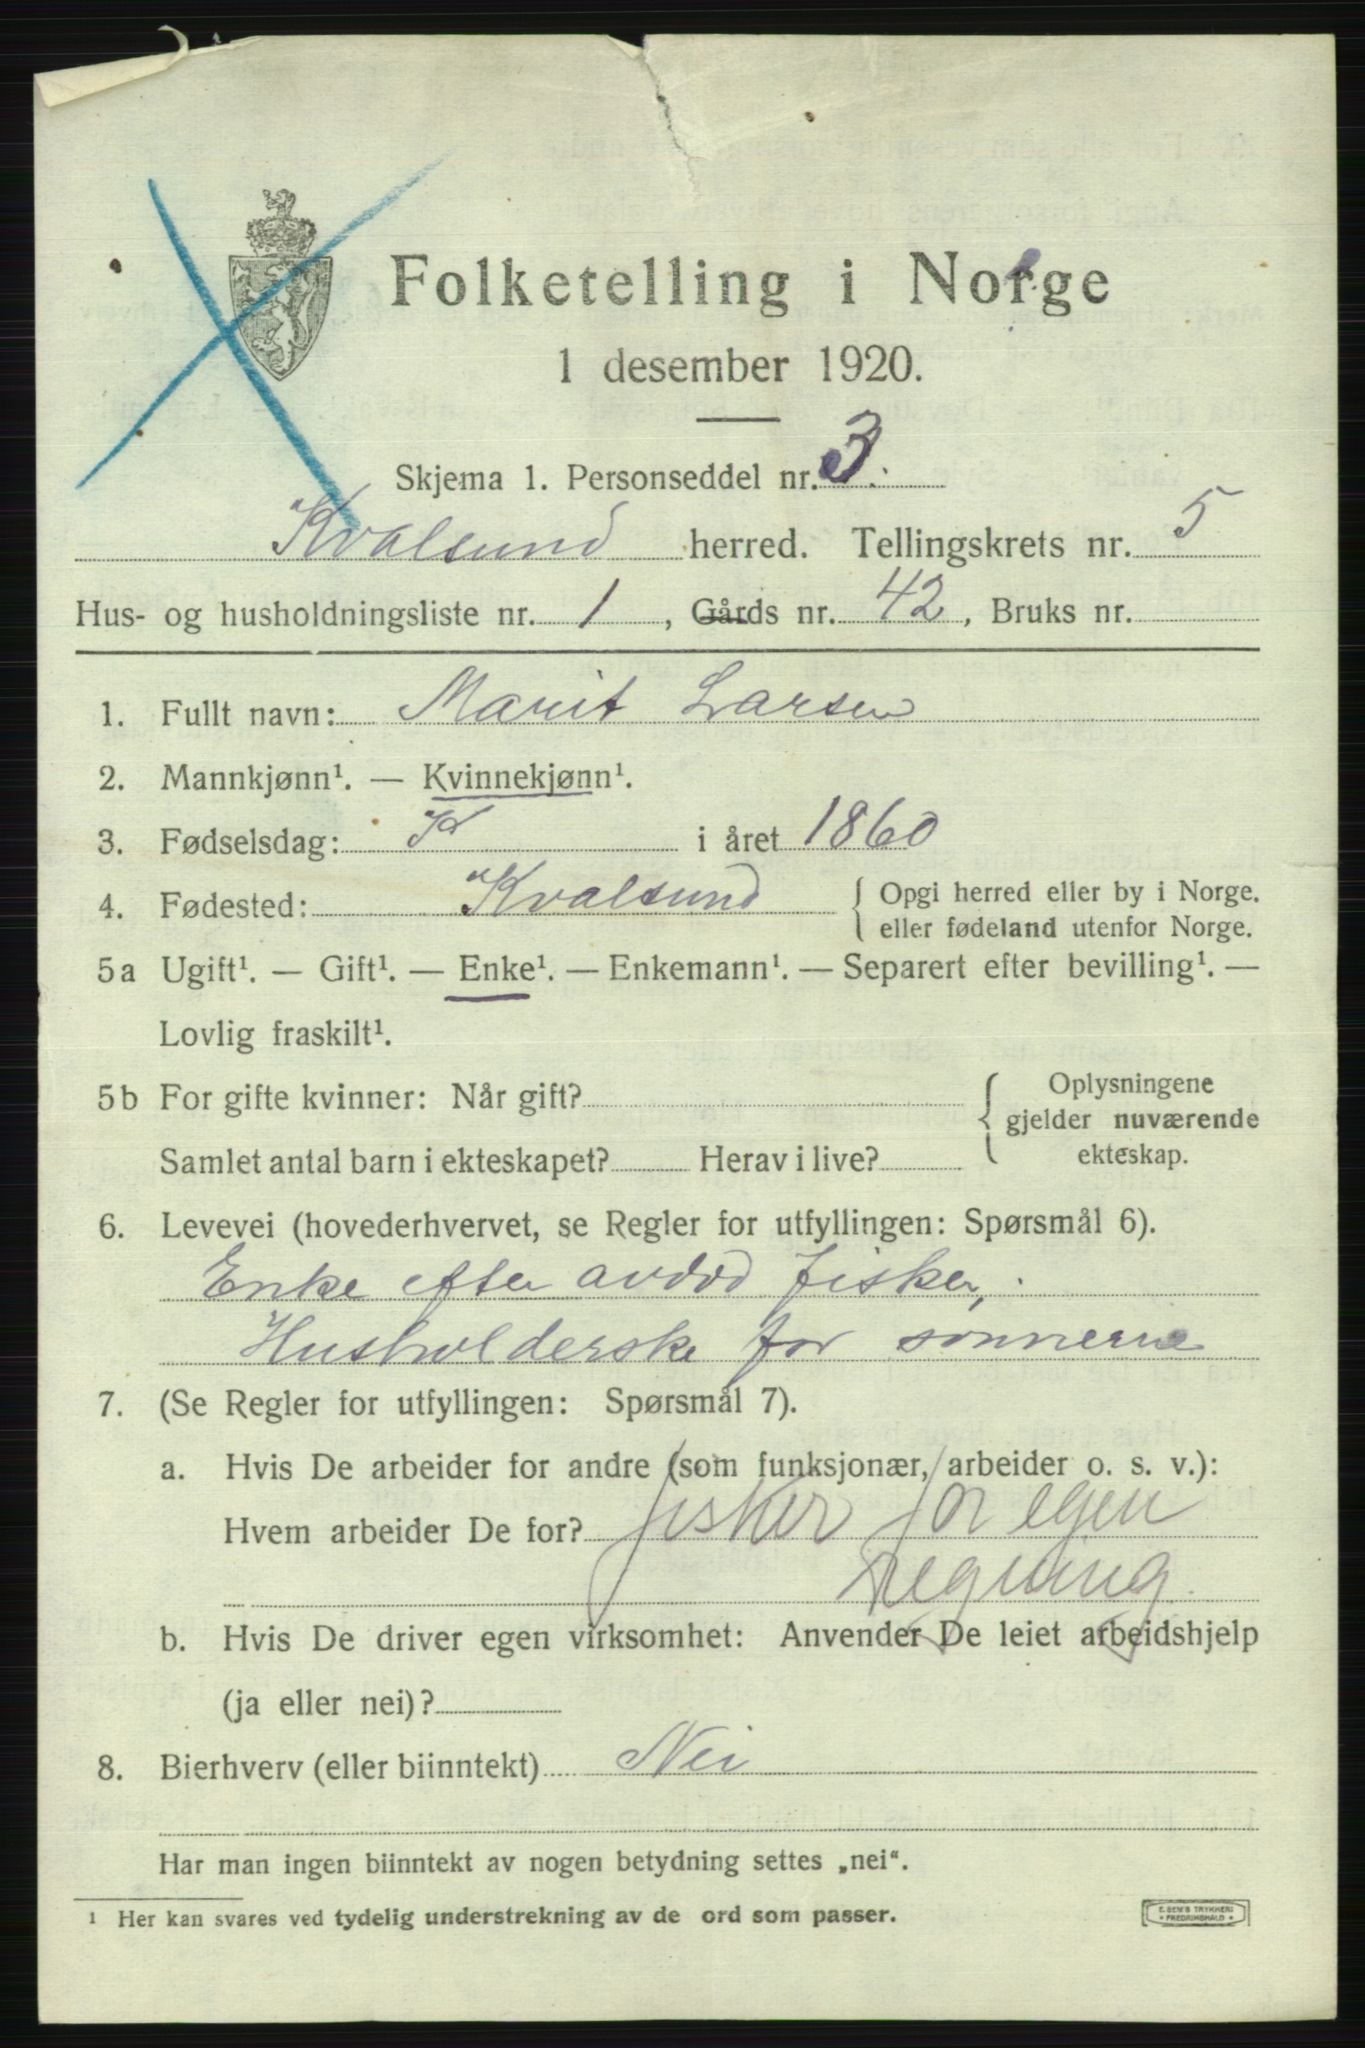 Folketelling i Norge
1 desember 1920.
Skjema 1. Personseddel nr. 3.
Kvalsund herred. Tellingskrets nr. 5
Hus- og husholdningsliste nr. 1, Gårds nr. 42, Bruks nr.
1. Fullt navn: Marit Larsen
2. Mannkjønn¹. — Kvinnekjønn¹.
3. Fødselsdag: K i året 1860
4. Fødested: Kvalsund { Opgi herred eller by i Norge.
eller fødeland utenfor Norge.
5a Ugift¹. — Gift¹. — Enke¹. — Enkemann¹. — Separert efter bevilling¹. —
Lovlig fraskilt¹.
5b For gifte kvinner: Når gift? { Oplysningene
gjelder nuværende
Samlet antal barn i ekteskapet? Herav i live? ekteskap.
6. Levevei (hovederhvervet, se Regler for utfyllingen: Spørsmål 6).
Enke efter avdød fisker,
Husholderske for sønnerne
7. (Se Regler for utfyllingen: Spørsmål 7).
a. Hvis De arbeider for andre (som funksjonær, arbeider o. s. v.):
Hvem arbeider De for? fisker for egen
regning.
b. Hvis De driver egen virksomhet: Anvender De leiet arbeidshjelp
(ja eller nei)?
8. Bierhverv (eller biinntekt) Nei
Har man ingen biinntekt av nogen betydning settes „nei“.
¹ Her kan svares ved tydelig understrekning av de ord som passer.
E. SEM'S TRYKKERI
FREDRIKSHALD